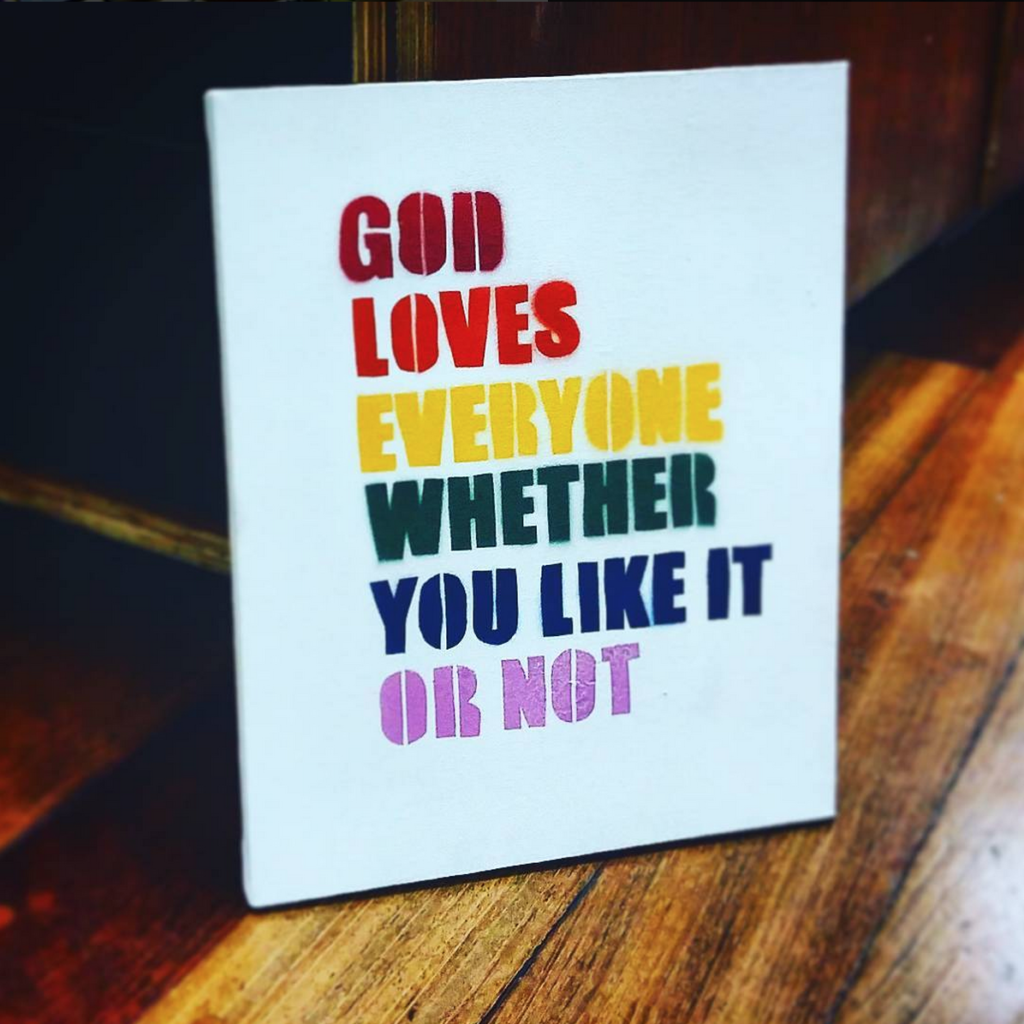 GOD
LOVES
EVERYONE
WHETHER
YOU LIKE IT
OR NOT